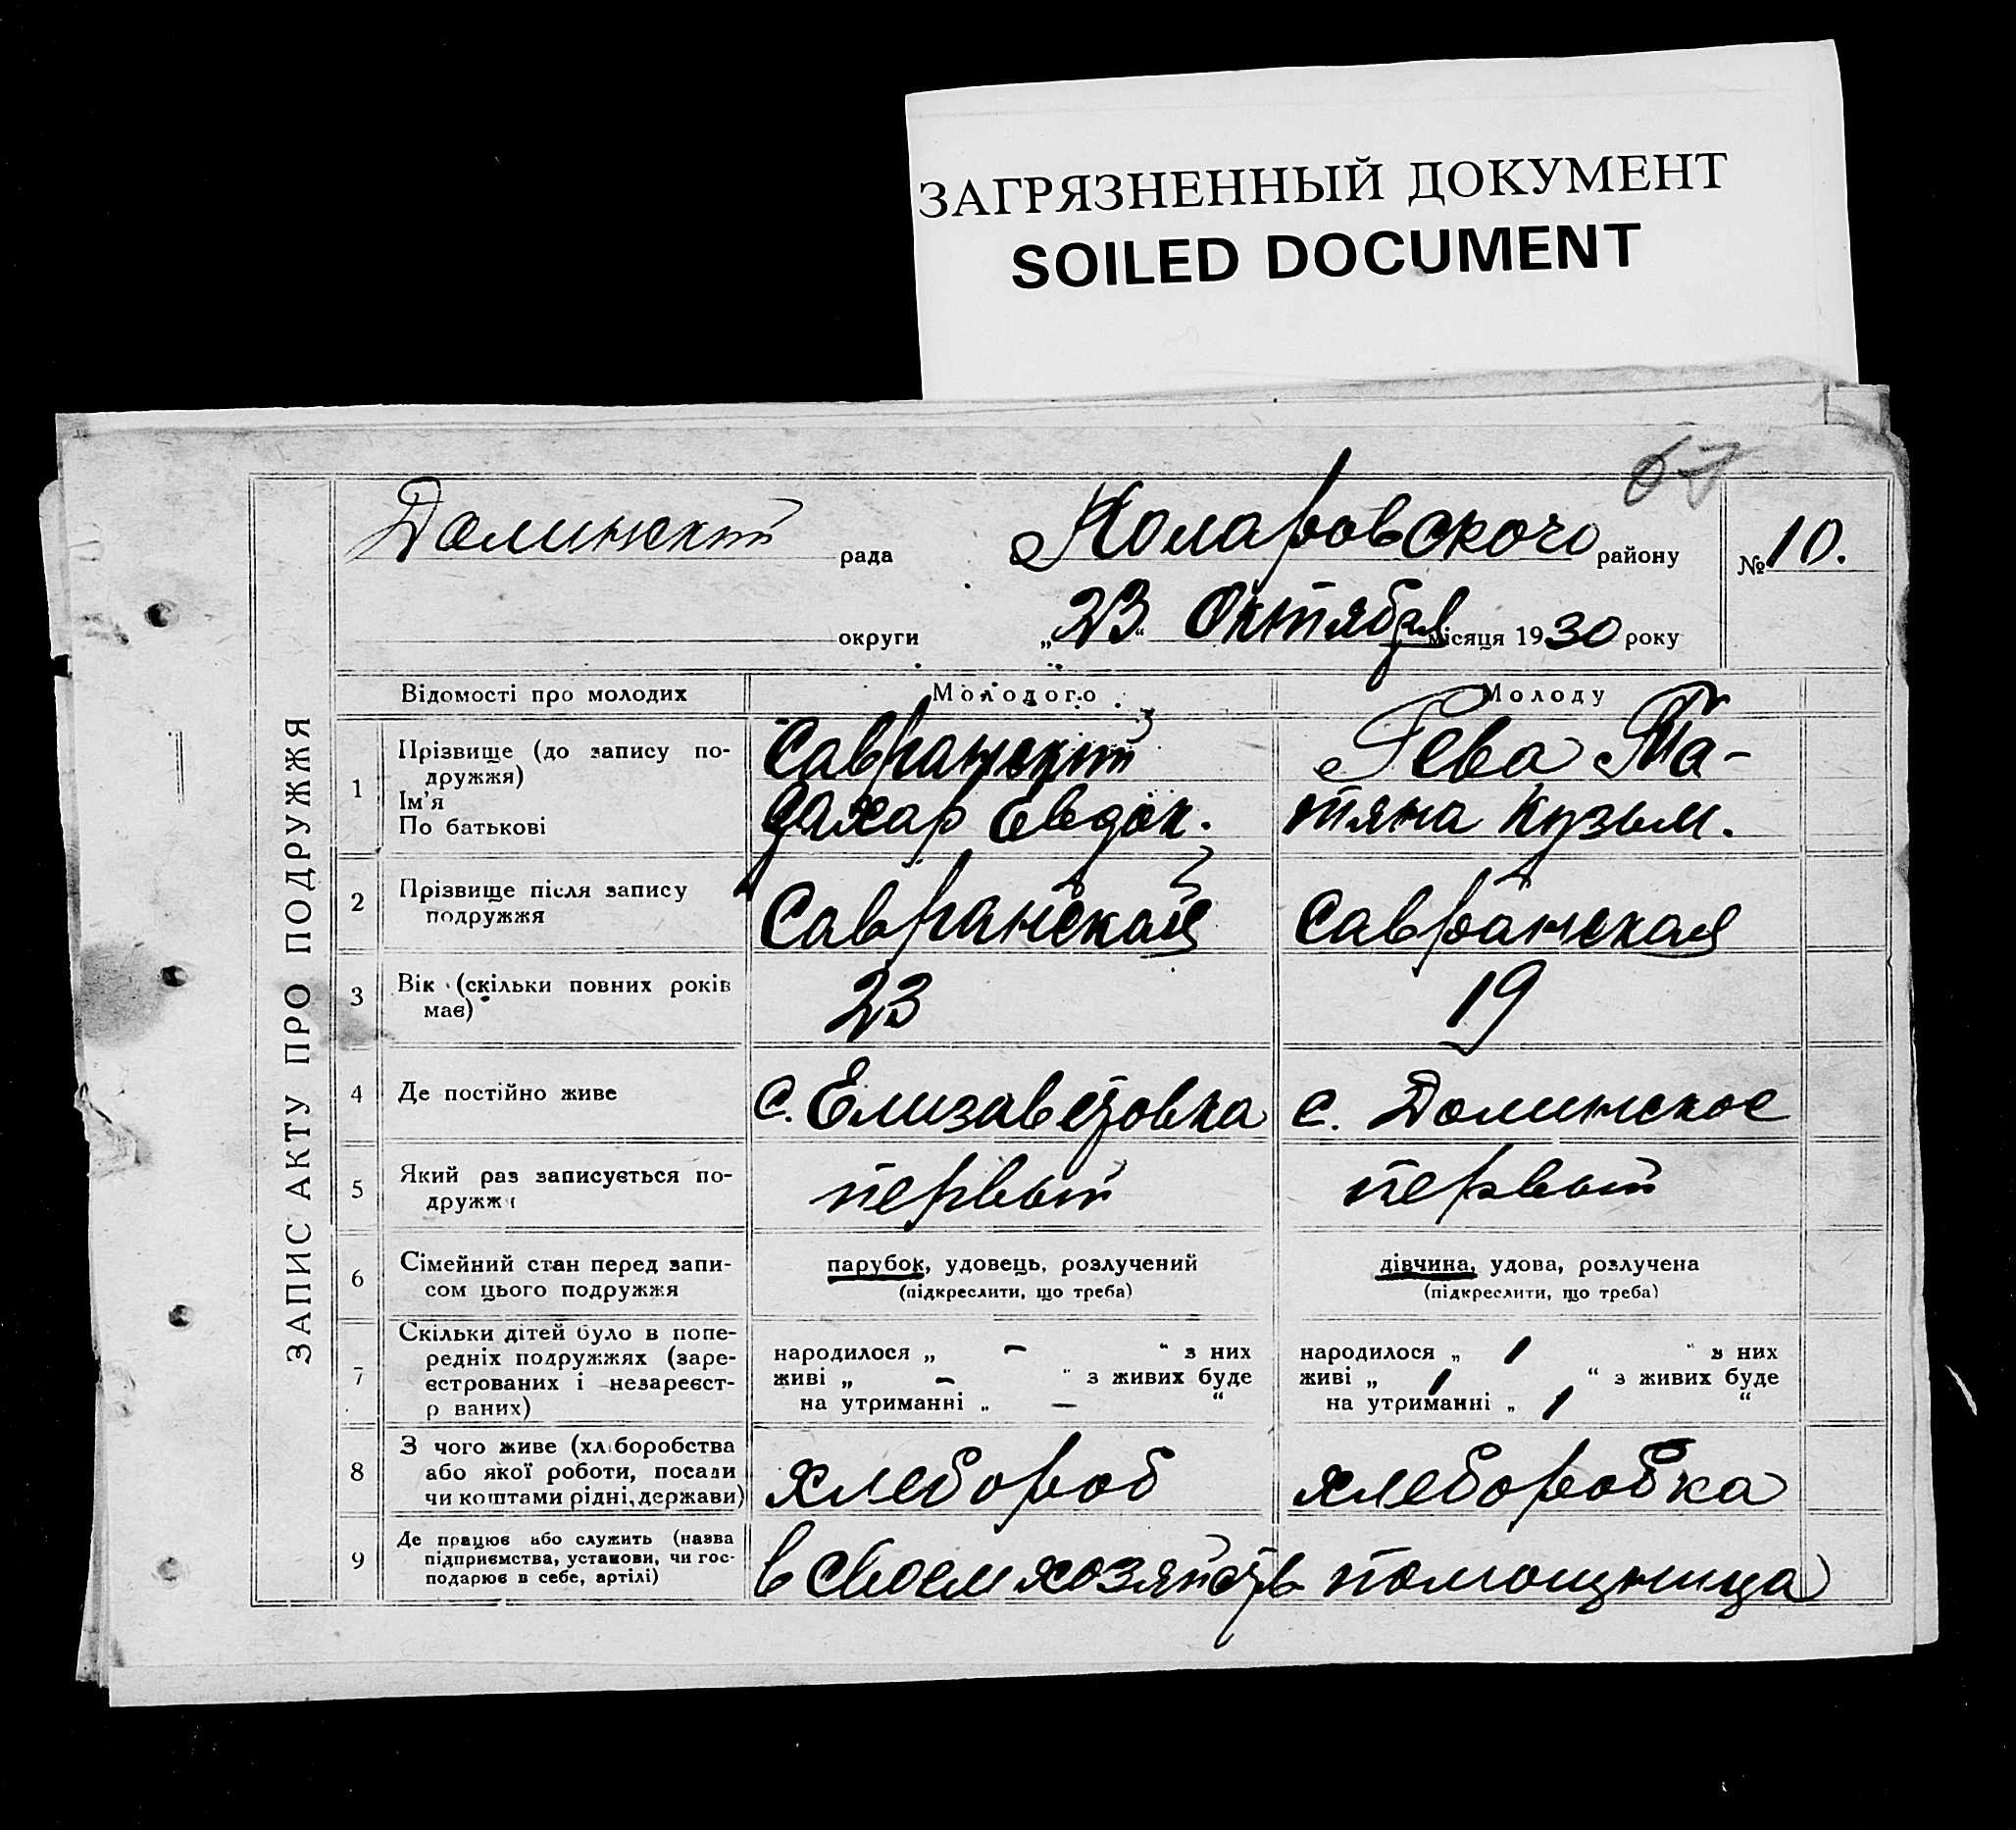 ЗАГРЯЗНЕННЫЙ ДОКУМЕНТ
SOILED DOCUMENT
67
Долинский рада Коларовского району № 10.
округи „23“ Октября місяця 1930 року
ЗАПИС АКТУ ПРО ПОДРУЖЖЯ
Відомості про молодих Молодого Молоду
1 Прізвище (до запису по-
дружжя)
Ім'я
По батькові
Савранский
Захар Евдок.
Рева Та-
тяна Кузьм.
2 Прізвище після запису
подружжя
Савранская
Савранская
3 Вік (скільки повних років
має)
23
19
4 Де постійно живе
с. Елизаветовка
с. Долинское
5 Який раз записується по-
дружжя
первый
первый
6 Сімейний стан перед запи-
сом цього подружжя
парубок, удовець, розлучений
(підкреслити, що треба)
дівчина, удова, розлучена
(підкреслити, що треба)
7 Скільки дітей було в попе-
редніх подружжях (заре-
єстрованих і незареєст-
р ваних)
народилося „ – “ з них
живі „ – “ з живих буде
на утриманні „ – “
народилося „ 1 “ з них
живі „ 1 “ з живих буде
на утриманні „ 1 “
8 З чого живе (хліборобства
або якої роботи, посади
чи коштами рідні, держави)
хлебороб
хлеборобка
9 Де працює або служить (назва
підприємства, установи, чи гос-
подарює в себе, артілі)
в своем хозяйств
помощница